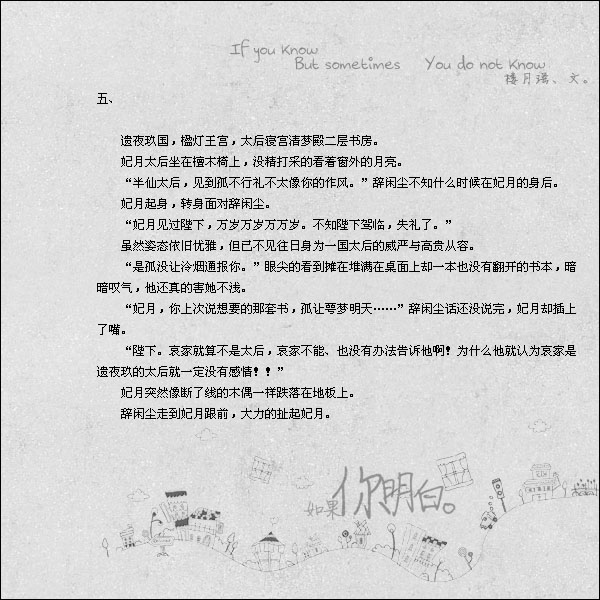 If you Know
But sometimes You do not Know
楼月瑶、文。
五、
遗夜玖国，楹灯王宫，太后寝宫清梦殿二层书房。
妃月太后坐在檀木椅上，没精打采的看着窗外的月亮。
“半仙太后，见到孤不行礼不太像你的作风。”辞闲尘不知什么时候在妃月的身后。
妃月起身，转身面对辞闲尘。
“妃月见过陛下，万岁万岁万万岁。不知陛下驾临，失礼了。”
虽然姿态依旧优雅，但已不见往日身为一国太后的威严与高贵从容。
“是孤没让泠烟通报你。”眼尖的看到摊在堆满在桌面上却一本也没有翻开的书本，暗
暗叹气，他还真的害她不浅。
“妃月，你上次说想要的那套书，孤让萼梦明天……”辞闲尘话还没说完，妃月却插上
了嘴。
“陛下。哀家就算不是太后，哀家不能、也没有办法告诉他啊！为什么他就认为哀家是
遗夜玖的太后就一定没有感情！！”
妃月突然像断了线的木偶一样跌落在地板上。
辞闲尘走到妃月跟前，大力的扯起妃月。
如果你明白。